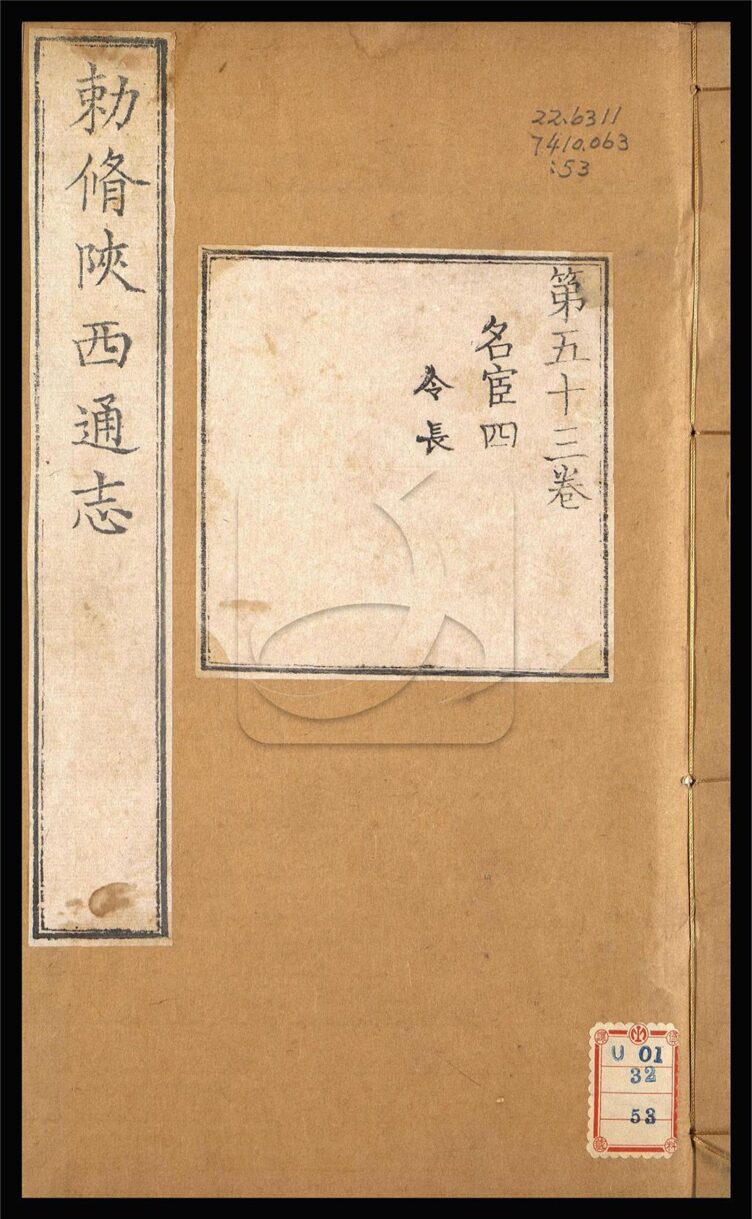 勅脩陜西通志
22.6311
7410.063
:53
第五十三卷
名宦四
令長
U 01
32
53